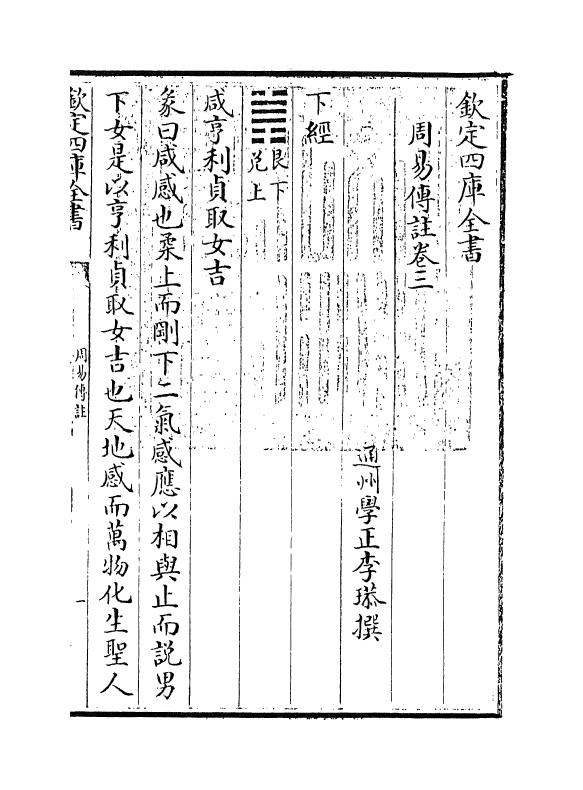 欽定四庫全書
周易傳註卷三
通州學正李塨撰
下經
䷞艮下
兌上
咸亨利貞取女吉
彖曰咸感也柔上而剛下二氣感應以相與止而説男
下女是以亨利貞取女吉也天地感而萬物化生聖人
欽定四庫全書
周易傳註
一